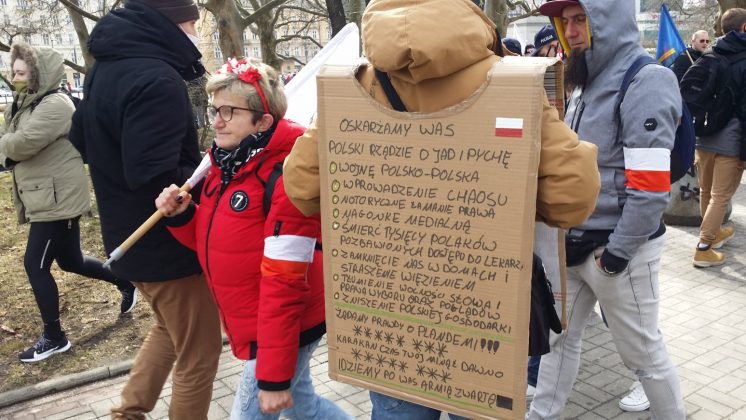 OSKARŻAMY WAS
POLSKI RZĄDZIE O JAD I PYCHĘ
O WOJNĘ POLSKO-POLSKA
O WPROWADZENIE CHAOSU
O NOTORYCZNE ŁAMANIE PRAWA
O NAGONKĘ MEDIALNĄ
O ŚMIERĆ TYSIĘCY POLAKÓW
POZBAWIONYCH DOSTĘPU DO LEKARZ
O ZAMKNIĘCIE NAS W DOMACH I
STRASZENIE WIĘZIENIEM
O TŁUMIENIE WOLNOŚCI SŁOWA I
PRAWA WYBORU ORAZ POGLĄDÓW
O ZNISZENIE POLSKIEJ GOSPODARKI
ŻĄDAMY PRAWDY O PLANDEMI!!!
***** ***
KARAKAN CZAS TWÓJ MINĄŁ DAWNO
***** ***
IDZIEMY PO WAS ARMIĄ ZWARTĄ
7